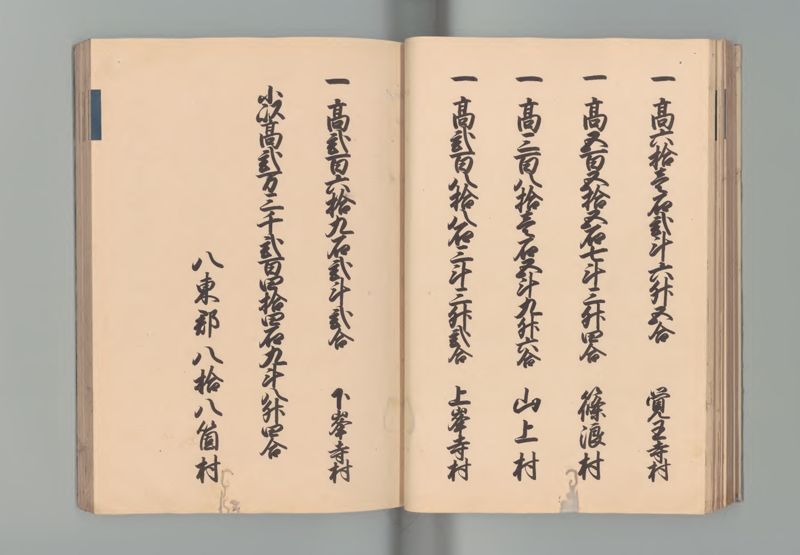 一 高六拾壱石弐斗六升五合 覚王寺村
一 高五百五拾五石七斗三升四合 篠波村
一 高三百八拾壱石五斗九升六合 山上村
一 高弐百八拾八石三斗三升弐合 上峯寺村
一 高弐百六拾九石弐斗弐合 下峯寺村
小以高弐万三千弐百四拾四石九斗八升四合
八東郡八拾八箇村